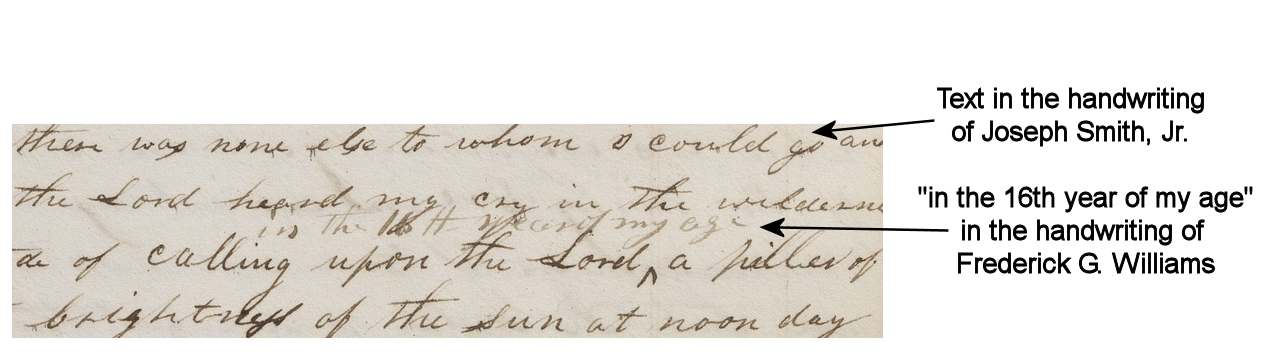 there was none else to whom I could go an
the Lord heard my cry in the wilderne
in the 16th year of my age
de of calling upon the Lord ^ a piller of
brightness of the sun at noon day
Text in the handwriting
of Joseph Smith, Jr.
"in the 16th year of my age"
in the handwriting of
Frederick G. Williams